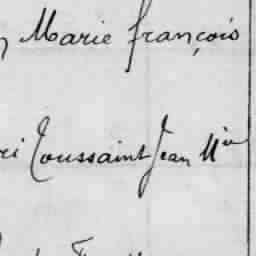 Marie françois
Toussaint Jean Mie